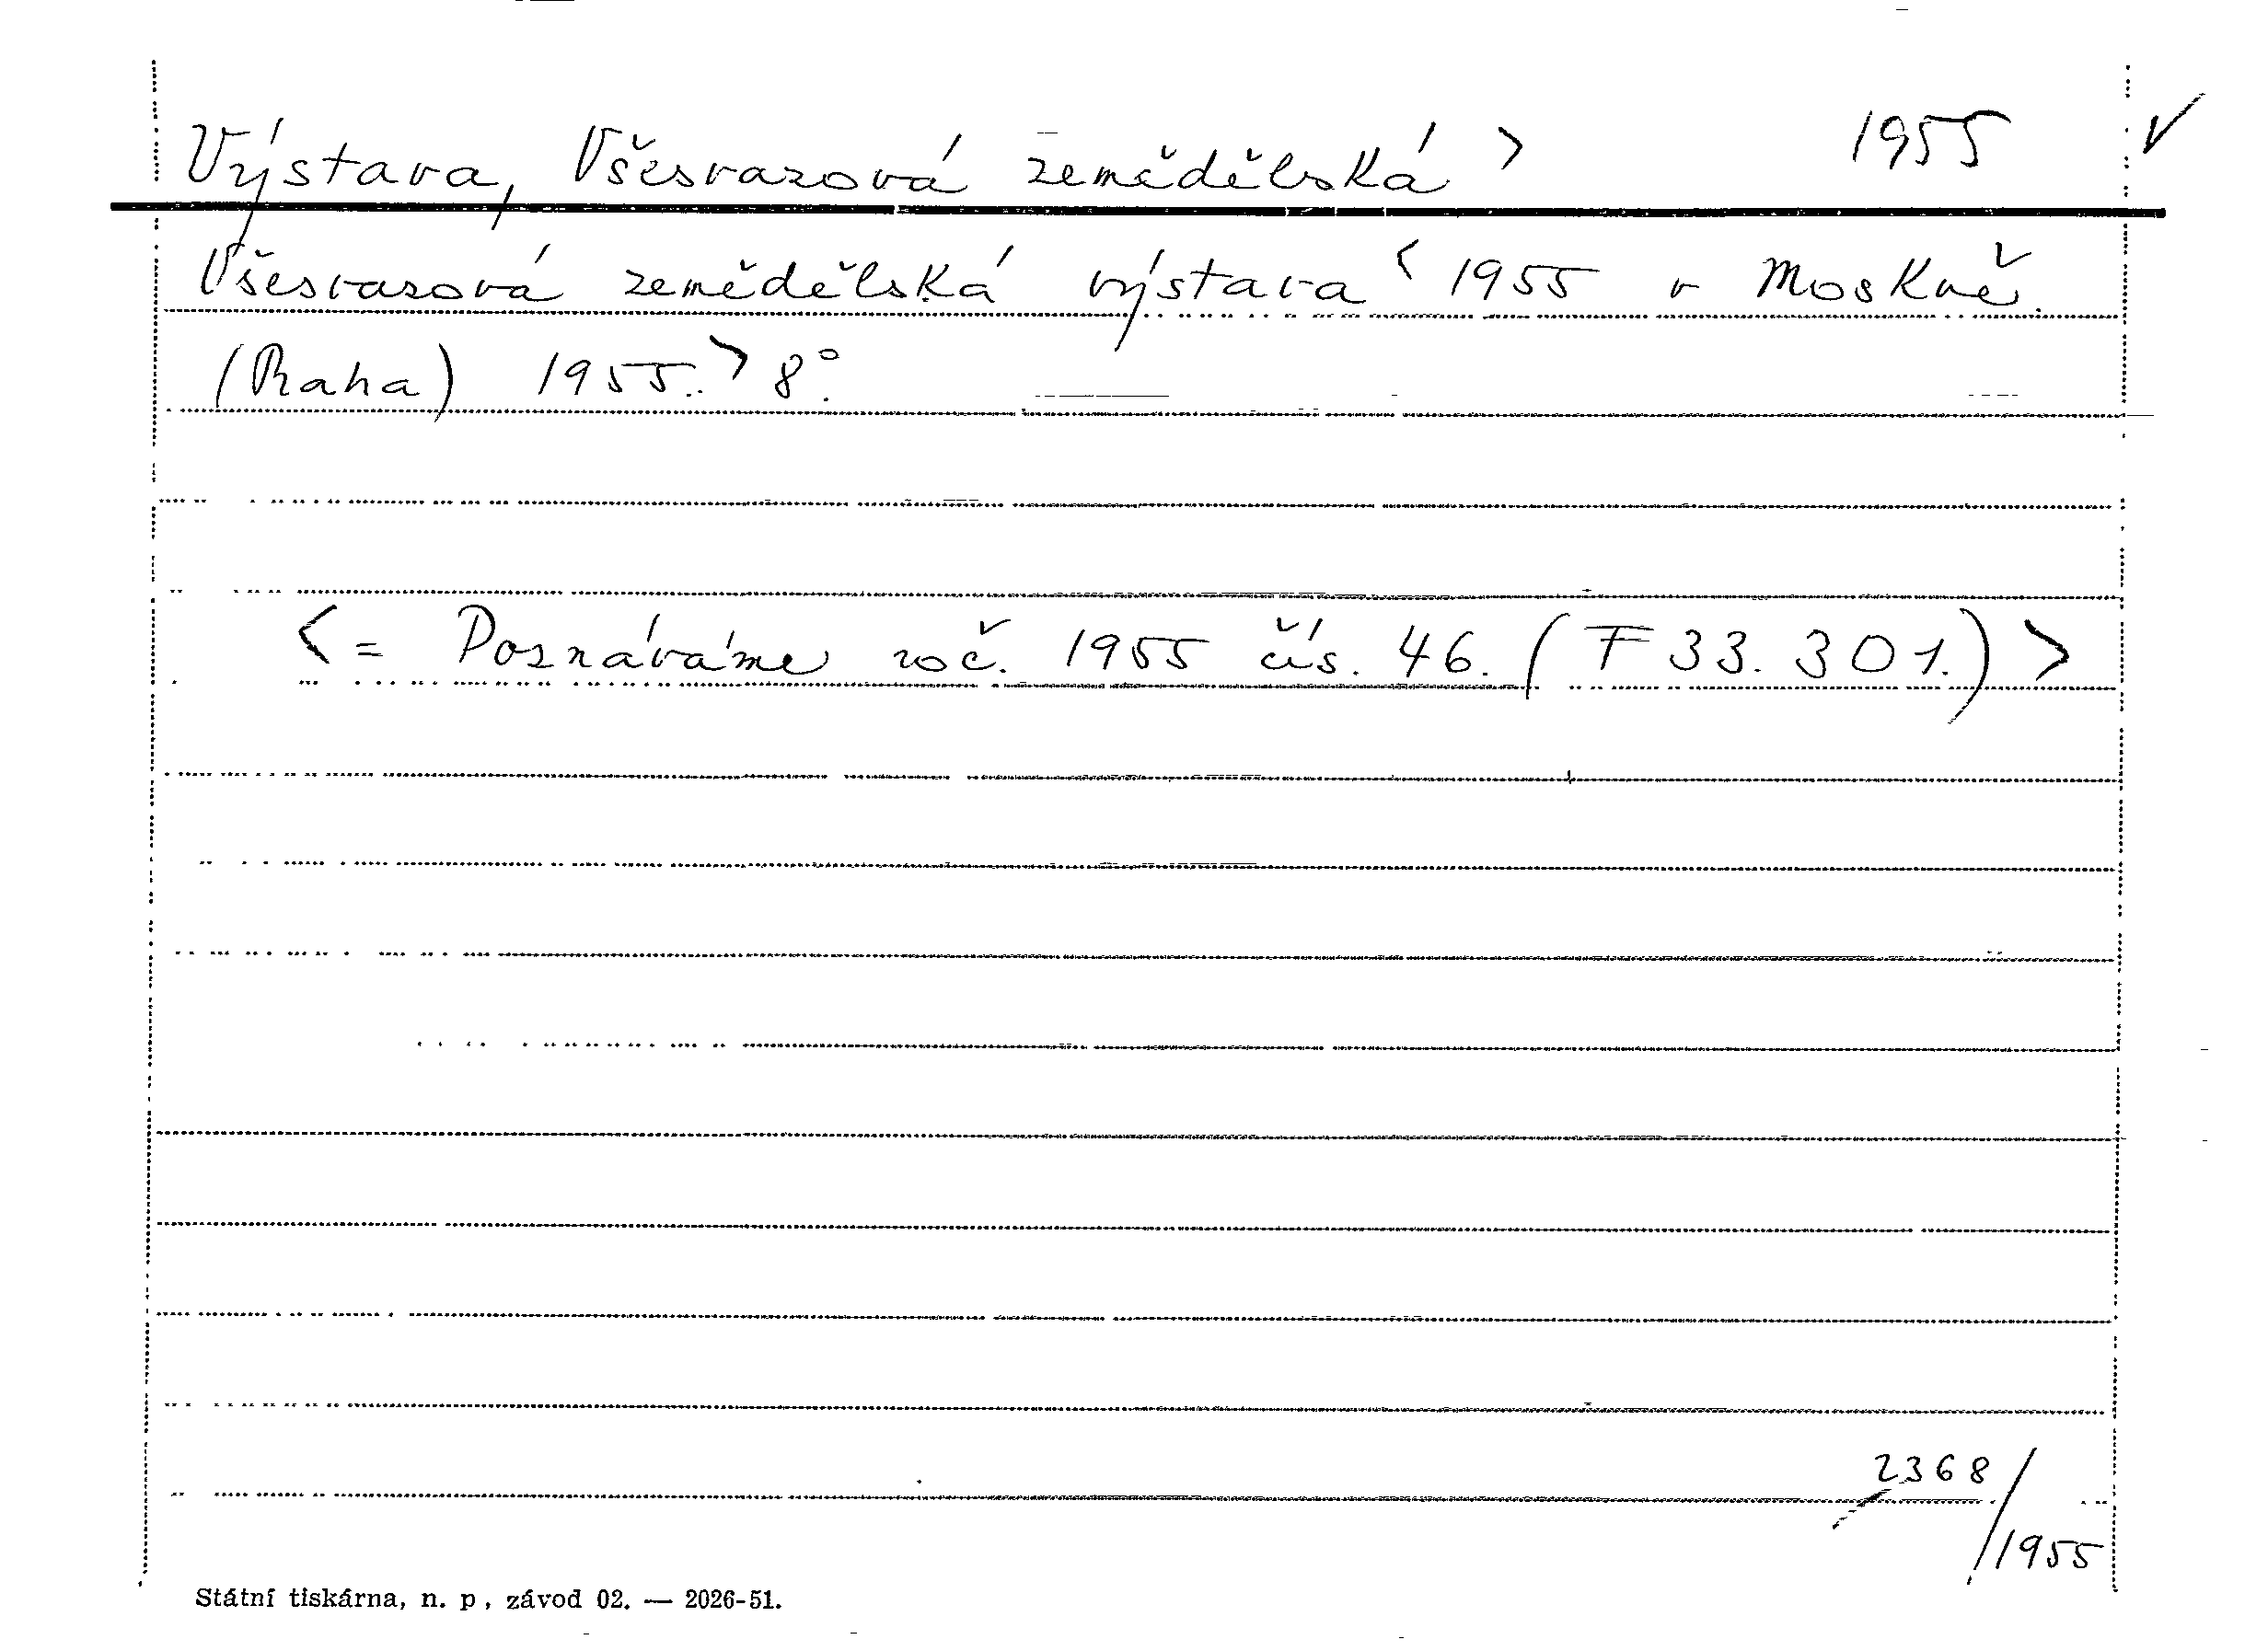 Výstava, Všesvazová zemědělská > 1955 ✓
Všesvazová zemědělská výstava < 1955 v Moskvě.
(Praha) 1955. > 8°.
< = Poznáváme roč. 1955 čís. 46. (F 33. 301.) >
2368/1955
Státní tiskárna, n. p., závod 02. — 2026-51.